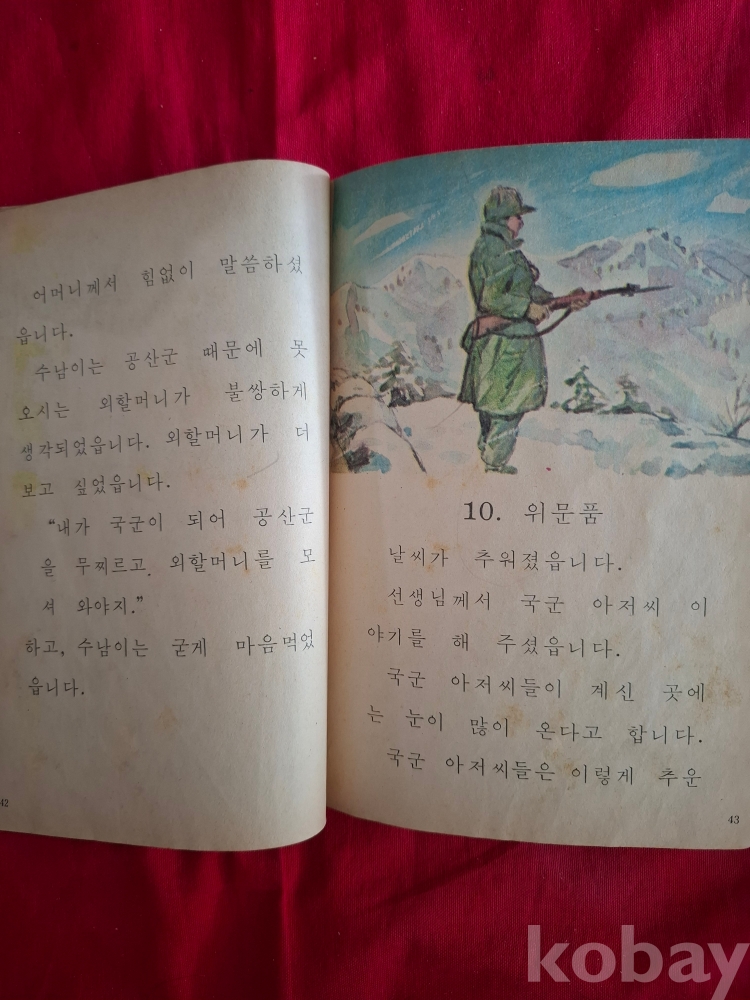 어머니께서 힘없이 말씀하셨
읍니다.
수남이는 공산군 때문에 못
오시는 외할머니가 불쌍하게
생각되었읍니다. 외할머니가 더
보고 싶었읍니다.
"내가 국군이 되어 공산군
을 무찌르고, 외할머니를 모
셔 와야지."
하고, 수남이는 굳게 마음먹었
읍니다.
42
10. 위문품
날씨가 추워졌읍니다.
선생님께서 국군 아저씨 이
야기를 해 주셨읍니다.
국군 아저씨들이 계신 곳에
는 눈이 많이 온다고 합니다.
국군 아저씨들은 이렇게 추운
43
kobay